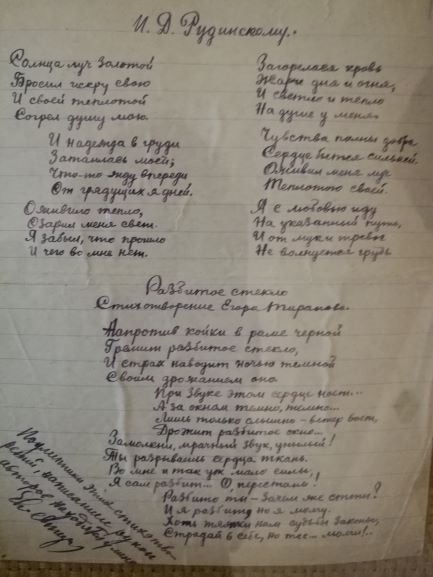 И. Д. Рудинскому.
Солнца луч золотой
Бросил искру свою
И своей теплотой
Согрел душу мою.
И надежда в груди
Затаилась моей;
Что-то жду впереди
От грядущих я дней.
Оживило тепло,
Озарил меня свет.
Я забыл, что прошло
И чего во мне нет.
Загорелася кровь
Жарче дня и огня,
И светло и тепло
На душе у меня.
Чувства полны добра
Сердце бьется сильней.
Оживил меня луч
Теплотою своей.
Я с любовью иду
На указанный путь,
И от мук и тревог
Не волнуется грудь
Разбитое стекло
Стихотворение Егора
Напротив койки в раме черной
Гремит разбитое стекло,
И страх наводит ночью темной
Своим дрожанием оно.
При звуке этом сердце ноет...
А за окном темно, темно...
Лишь только слышно - ветер воет,
Дрожит разбитое окно...
Замолкни, мрачный звук, унылый!
Ты разрываешь сердца ткань.
Во мне и так уж мало силы,
Я сам разбит... О, перестань!
Разбито ты - Зачем же стоны?
И я разбит, но я молчу.
Хоть тяжки нам судьбы законы,
Страдай в себе, но тсс... молчи!..